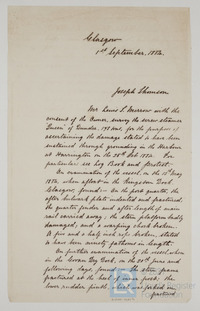 Glasgow
1st September, 1882.
Joseph Thomson
Mr Louis S. Merrow with the
consent of the Owner, survey the screw steamer
"Queen of Dundee", 198 for the purpose of
ascertaining the damage stated to have been
sustained through grounding in the Harbour
at Harrington on the 28th 1882. For
particulars see Log Book and Protest.
On examination of the vessel, on the 15th May
1882, when afloat in the Kingston Dock
Glasgow, found:- On the port quarter, the
after bulwark plate indented and fractured,
the quarter fender and after length of main
rail carried away; the stern platform badly
damaged; and a warping chock broken.
A five and a half inch rope broken, stated
to have been ninety fathoms in length.
On further examination of the vessel, when
in the Govan Dry Dock, on the and
following days, found:- the stern frame
fractured at the heel of stern post; the
lower rudder pintle
fractured.